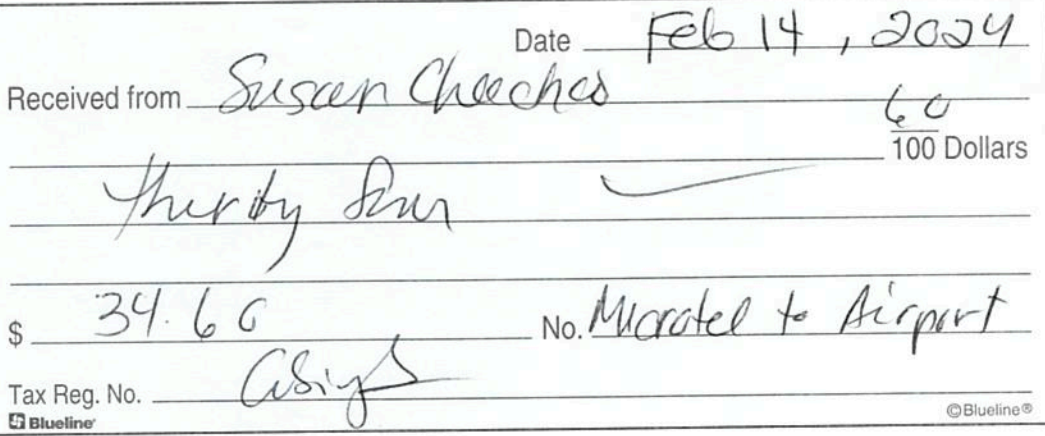 Date Feb 14, 2024
Received from Susan Cheechoo
60
100 Dollars
therity four
$ 34.60 No. Microtel to Airport
Tax Reg. No.
Blueline ©Blueline®